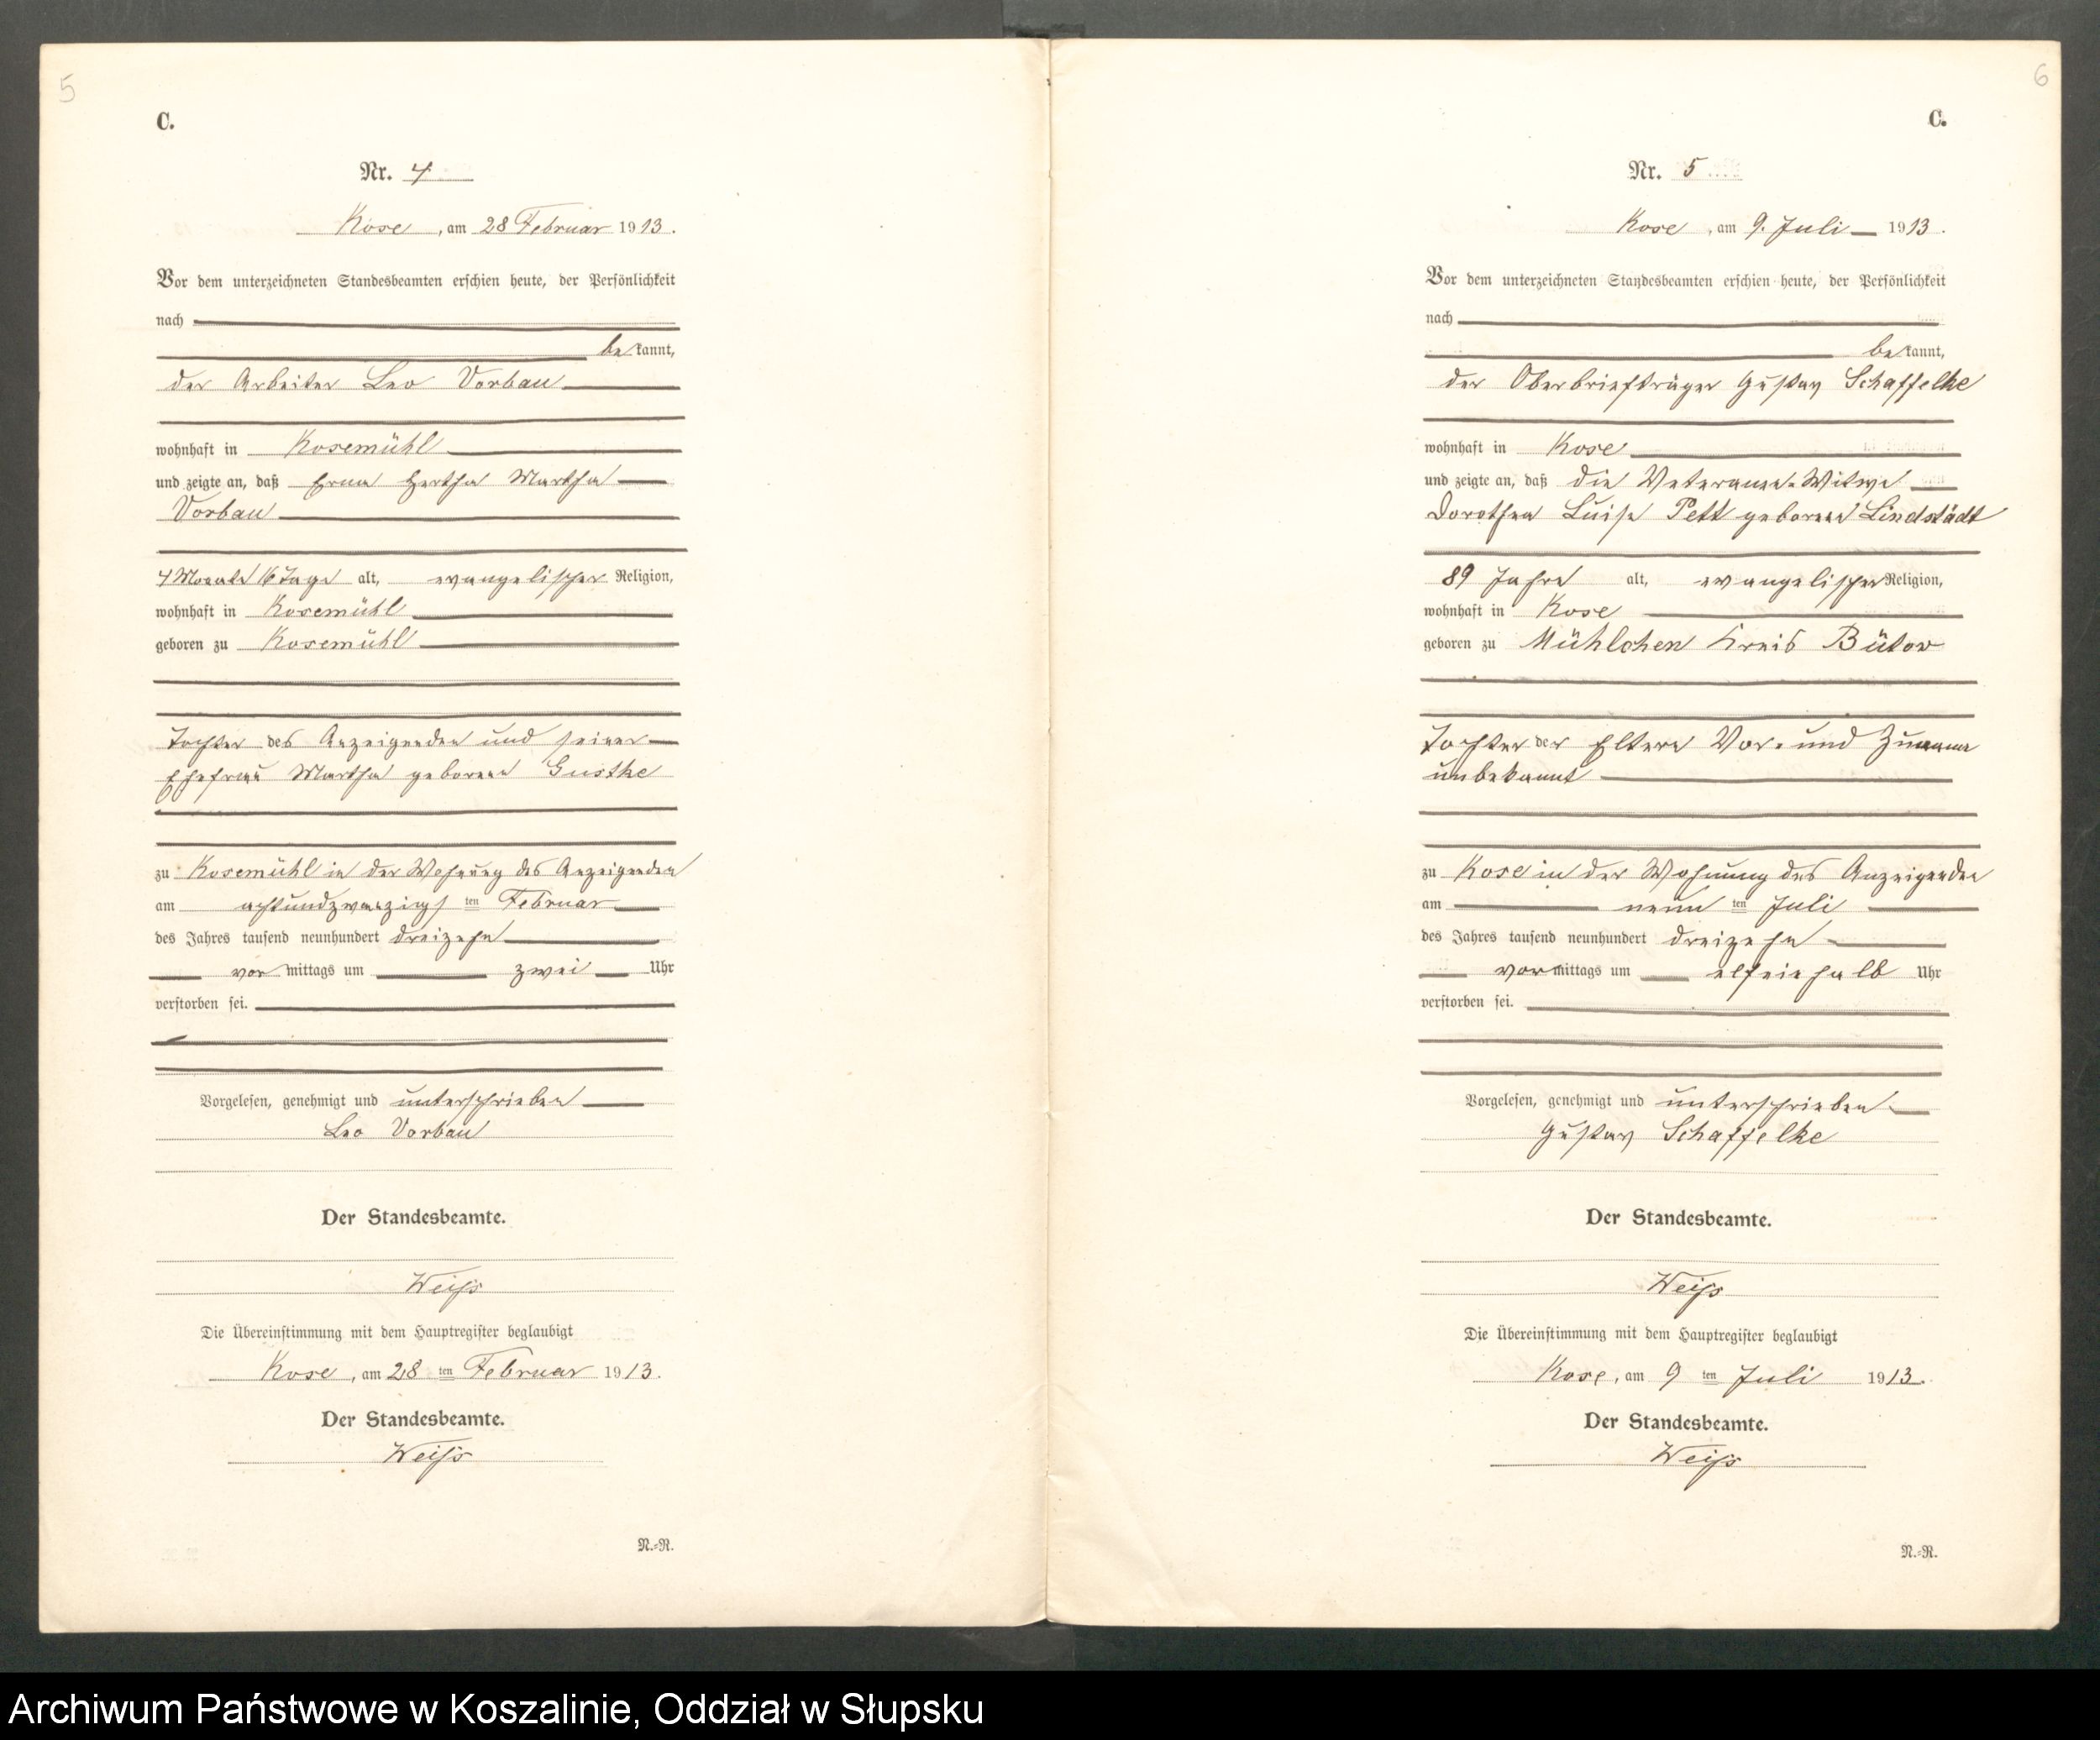 5
C.
Nr. 4
Kose, am 28 Februar 1913.
Vor dem unterzeichneten Standesbeamten erschien heute, der Persönlichkeit
nach
bekannt,
der Arbeiter Leo Vorbau
wohnhaft in Kosemühl
und zeigte an, daß Erna Hertha Martha
Vorbau
4 Monate 16 Tage alt, evangelischer Religion,
wohnhaft in Kosemühl
geboren zu Kosemühl
Tochter des Anzeigenden und seiner
Ehefrau Martha geborene Guske
zu Kosemühl in der Wohnung des Anzeigenden
am achtundzwanzigsten Februar
des Jahres tausend neunhundert dreizehn
vormittags um zwei Uhr
verstorben sei.
Vorgelesen, genehmigt und unterschrieben
Leo Vorbau
Der Standesbeamte.
Weiss
Die Übereinstimmung mit dem Hauptregister beglaubigt
Kose, am 28 ten Februar 1913.
Der Standesbeamte.
Weiss
N.-R.
6
C.
Nr. 5
Kose, am 9. Juli 1913.
Vor dem unterzeichneten Standesbeamten erschien heute, der Persönlichkeit
nach
bekannt,
der Oberbriefträger Gustav Schaffelke
wohnhaft in Kose
und zeigte an, daß die Veteranen-Witwe
Dorothea Luise Pett geborene Lindstädt
89 Jahre alt, evangelischer Religion,
wohnhaft in Kose
geboren zu Mühlchen Kreis Bütow
Tochter der Eltern Vor- und Zuname
unbekannt
zu Kose in der Wohnung des Anzeigenden
am neun ten Juli
des Jahres tausend neunhundert dreizehn
vormittags um elfeinhalb Uhr
verstorben sei.
Vorgelesen, genehmigt und unterschrieben
Gustav Schaffelke
Der Standesbeamte.
Weiss
Die Übereinstimmung mit dem Hauptregister beglaubigt
Kose, am 9 ten Juli 1913.
Der Standesbeamte.
Weiss
N.-R.
Archiwum Państwowe w Koszalinie, Oddział w Słupsku